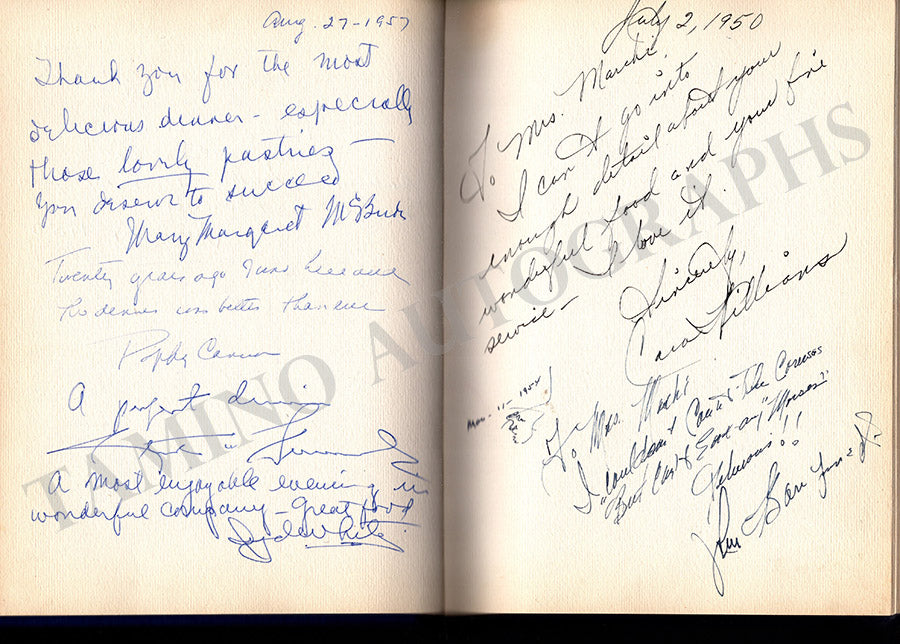 Aug. 27-1957
Thank you for the most
delicious dinner - especially
those lovely pastries -
You deserve to succeed
Mary Margaret McBride
Twenty years ago I was here and
the dinner was better than ever
Poppy Cannon
A perfect
A most enjoyable evening in
wonderful company - Great food
White
July 2, 1950
To Mrs. Marchi
I can't go into
enough detail about your
wonderful food and your fine
service - I love it.
Sincerely,
Williams
Mar - 11 - 1954
To Mrs. Marchi
I "couldn't Count" the Courses
But Can't Ever any "Morses"
Delicious!!
TAMINO AUTOGRAPHS